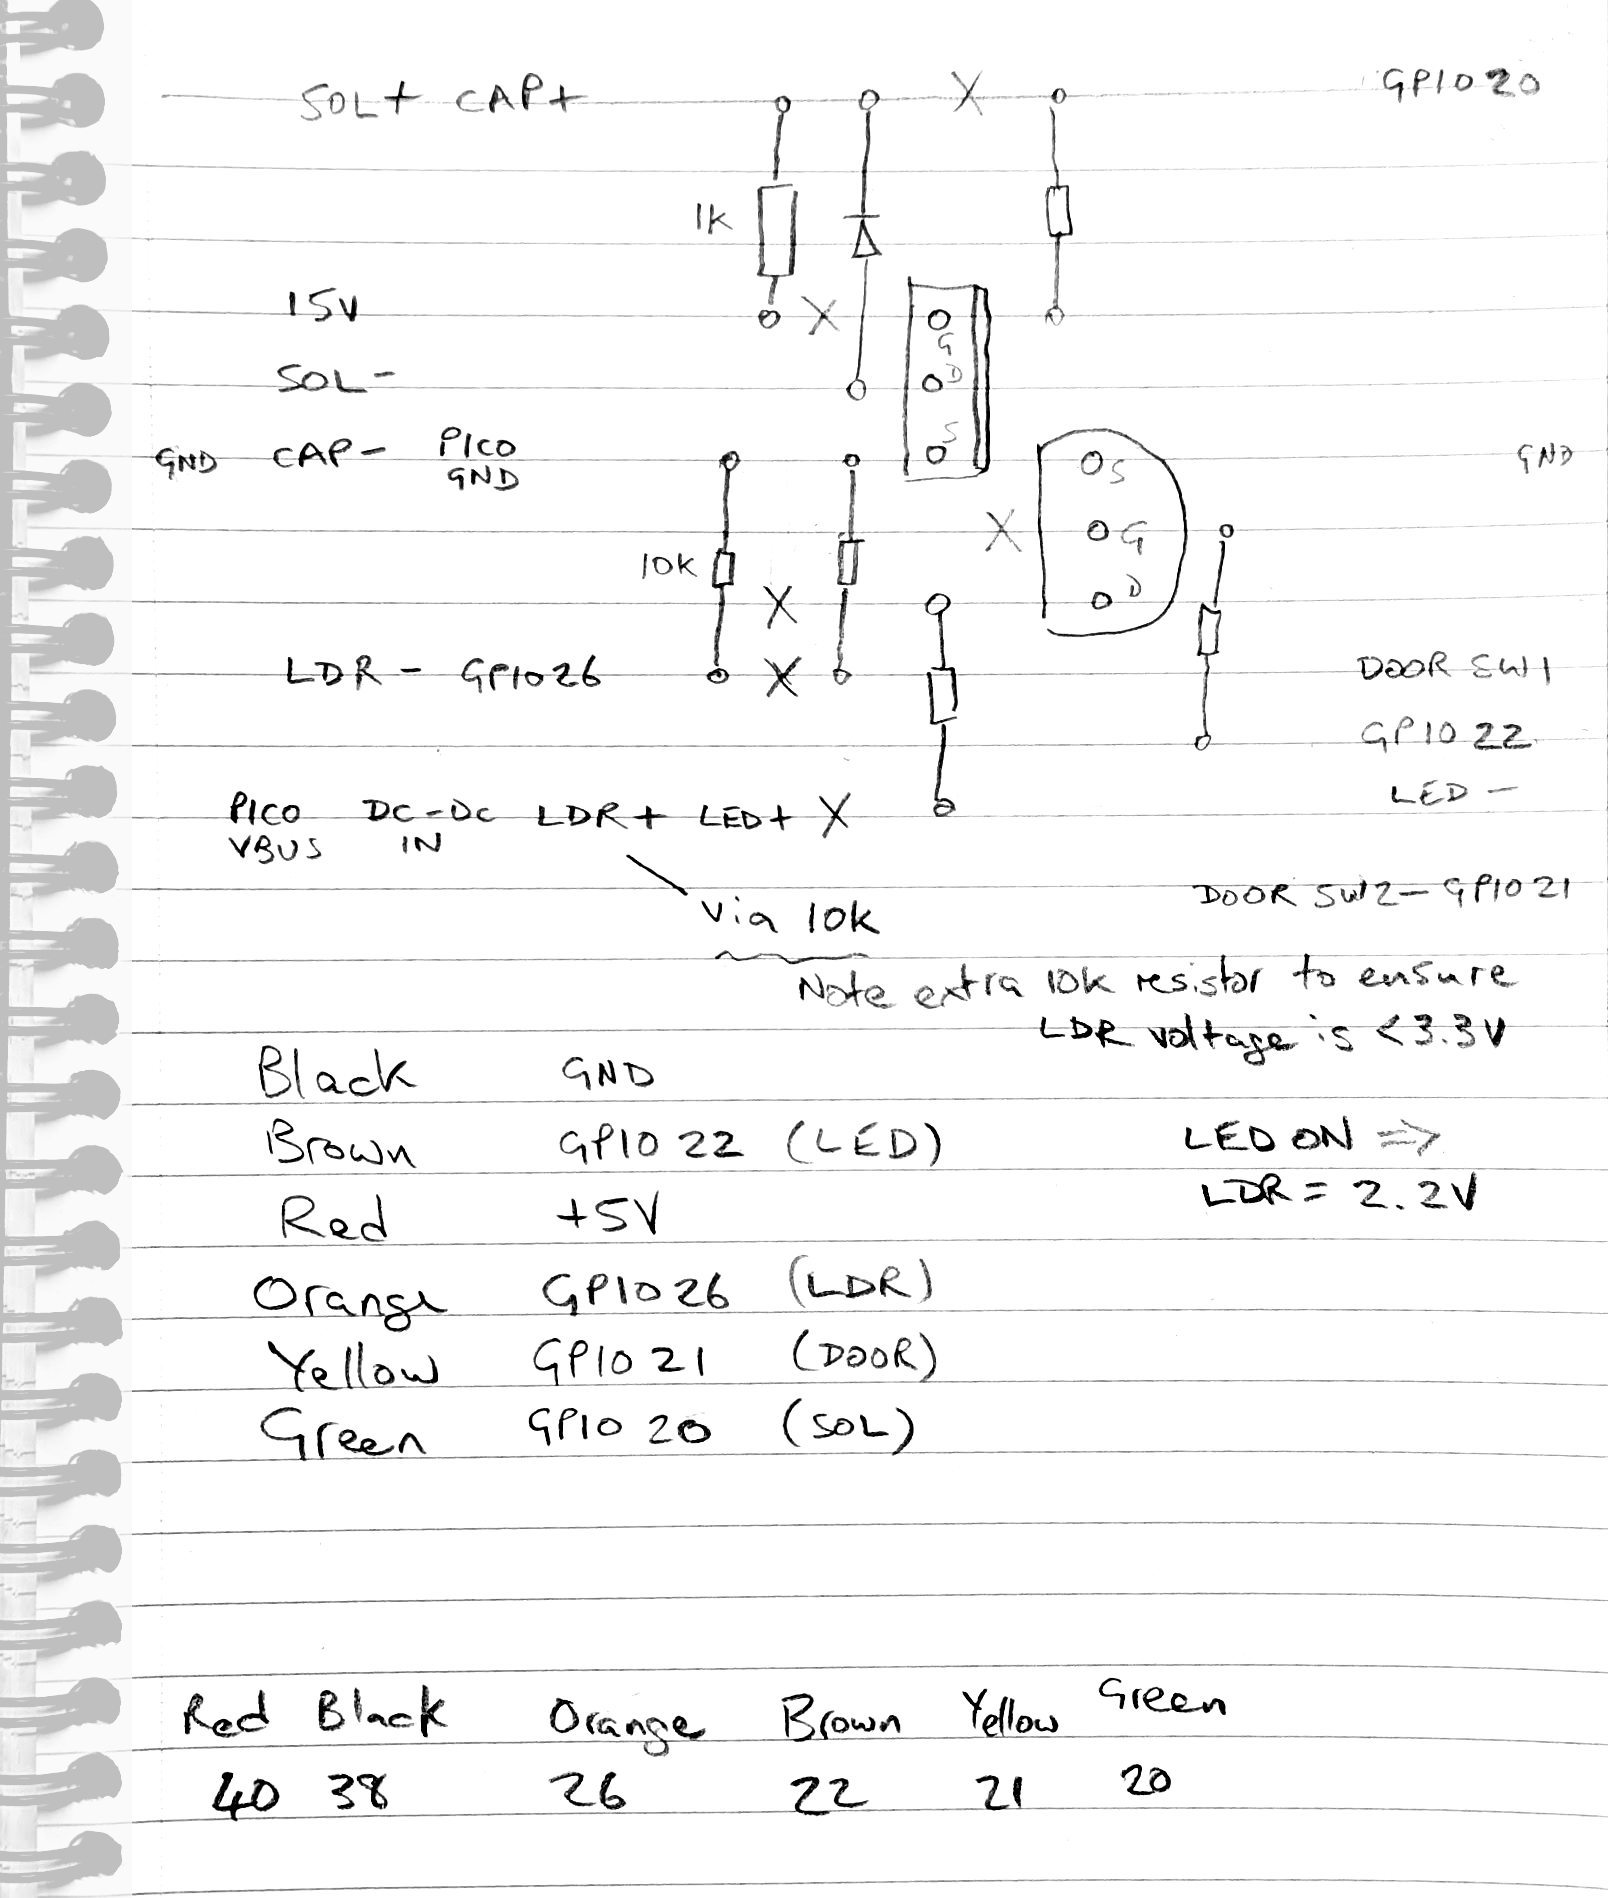 SOL+ CAP+ X GPIO 20
1K
15V X
G
SOL- D
GND CAP- PICO GND S S GND
X G
10K D
X
LDR - GPIO26 X DOOR SW1
GPIO 22
LED -
PICO VBUS DC-DC IN LDR+ LED+ X
DOOR SW2 - GPIO 21
Via 10k
Note extra 10k resistor to ensure
LDR voltage is <3.3V
Black GND
Brown GPIO 22 (LED) LED ON =>
Red +5V LDR = 2.2V
Orange GPIO 26 (LDR)
Yellow GPIO 21 (DOOR)
Green GPIO 20 (SOL)
Red Black Orange Brown Yellow Green
40 38 26 22 21 20